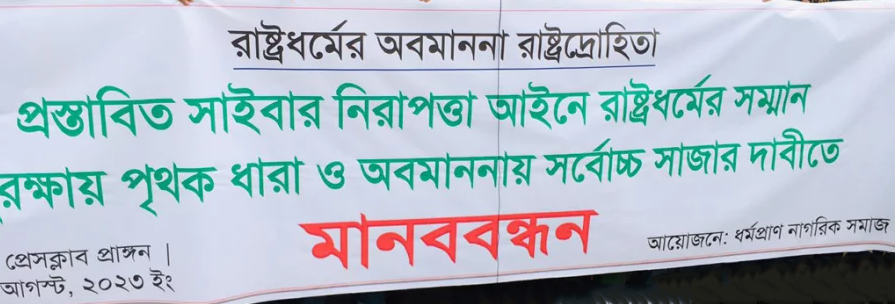 রাষ্ট্রধর্মের অবমাননা রাষ্ট্রদ্রোহিতা
প্রস্তাবিত সাইবার নিরাপত্তা আইনে রাষ্ট্রধর্মের সম্মান
রক্ষায় পৃথক ধারা ও অবমাননায় সর্বোচ্চ সাজার দাবীতে
মানববন্ধন
প্রেসক্লাব প্রাঙ্গন |
আগস্ট, ২০২৩ ইং
আয়োজনে: ধর্মপ্রাণ নাগরিক সমাজ